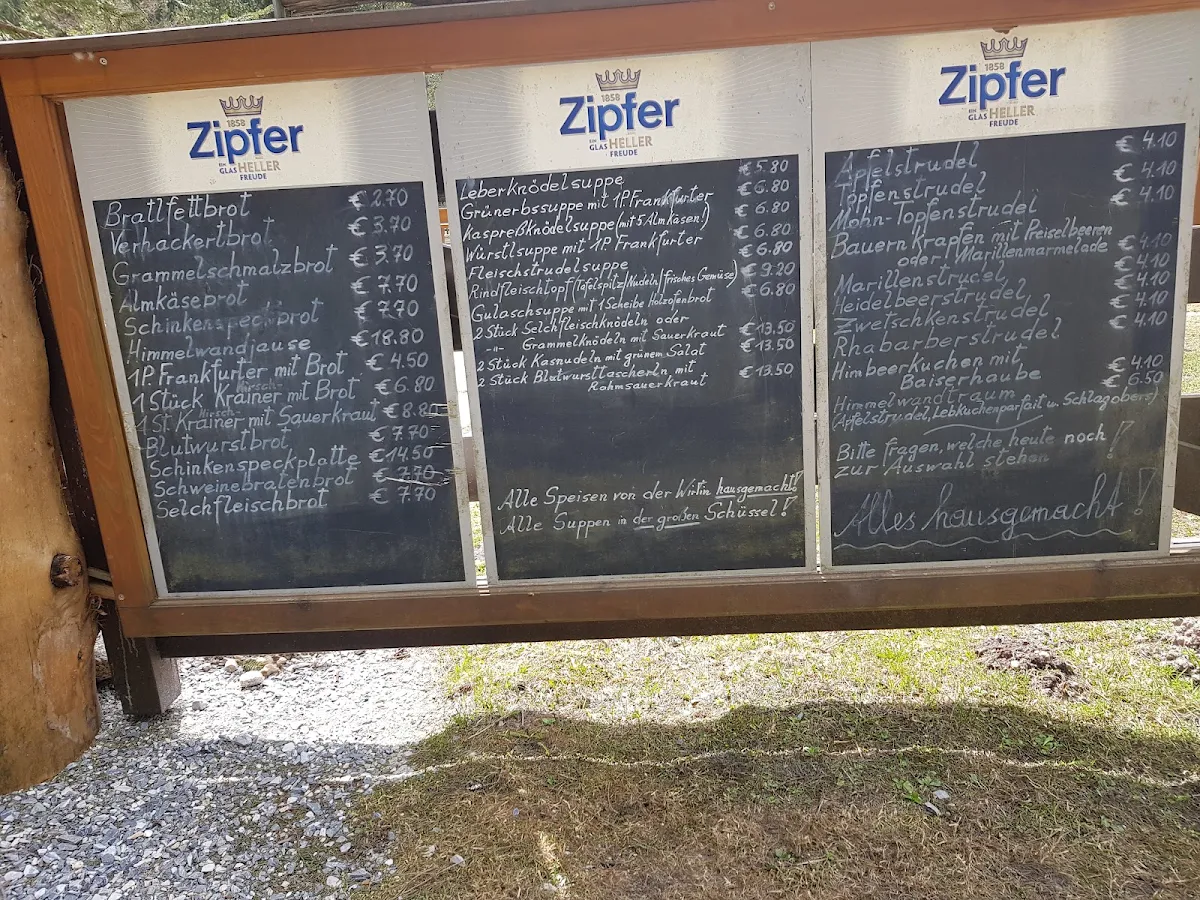 1858
Zipfer
EIN
GLAS HELLER
FREUDE
Bratlfettbrot € 2.70
Verhackertbrot € 3.70
Grammelschmalzbrot € 3.70
Almkäsebrot € 7.70
Schinkenspeckbrot € 7.70
Himmelwandjause € 18.80
1 P. Frankfurter mit Brot € 4.50
Hirsch-
1 Stück Krainer mit Brot € 6.80
Hirsch-
1 St. Krainer mit Sauerkraut € 8.80
Blutwurstbrot € 7.70
Schinkenspeckplatte € 14.50
Schweinebratenbrot € 7.70
Selchfleischbrot € 7.70
1858
Zipfer
EIN
GLAS HELLER
FREUDE
Leberknödelsuppe € 5.80
Grünerbssuppe mit 1P. Frankfurter € 6.80
Kaspreßknödelsuppe (mit 5 Almkäsen!) € 6.80
Würstlsuppe mit 1P. Frankfurter € 6.80
Fleischstrudelsuppe € 6.80
Rindfleischtopf (Tafelspitz/Nudeln/frisches Gemüse) € 9.20
Gulaschsuppe mit 1 Scheibe Holzofenbrot € 6.80
2 Stück Selchfleischknödeln oder
-"- Grammelknödeln mit Sauerkraut € 13.50
2 Stück Kasnudeln mit grünem Salat € 13.50
2 Stück Blutwursttascherln mit € 13.50
Rahmsauerkraut
Alle Speisen von der Wirtin hausgemacht!
Alle Suppen in der großen Schüssel!
1858
Zipfer
EIN
GLAS HELLER
FREUDE
Apfelstrudel € 4.10
Topfenstrudel € 4.10
Mohn-Topfenstrudel € 4.10
Bauernkrapfen mit Preiselbeeren
oder Marillenmarmelade € 4.10
Marillenstrudel € 4.10
Heidelbeerstrudel € 4.10
Zwetschkenstrudel € 4.10
Rhabarberstrudel € 4.10
Himbeerkuchen mit
Baiserhaube € 4.10
Himmelwandtraum € 6.50
(Apfelstrudel, Lebkuchenparfait u. Schlagobers)
Bitte fragen, welche heute noch
zur Auswahl stehen!
Alles hausgemacht!